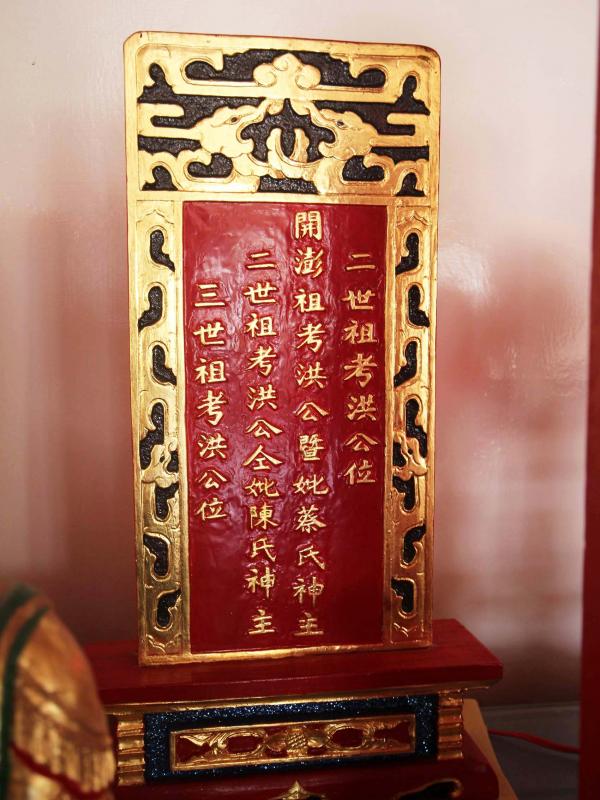 二世祖考洪公位
開澎祖考洪公暨妣蔡氏神主
二世祖考洪公仝妣陳氏神主
三世祖考洪公位